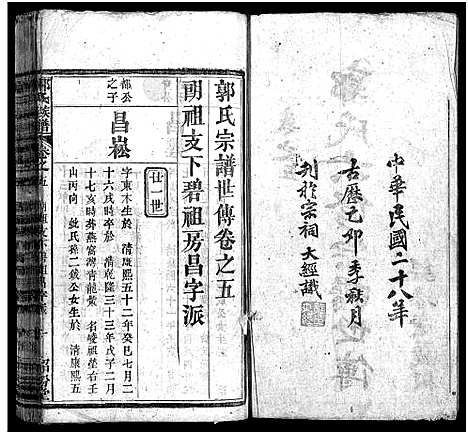 中華民國二十八年
古歷乙卯季秋月
刋於宗祠大經識
郭氏宗譜世傳卷之五
明祖支下碧祖房昌字派
廿一世
都公之子
昌崧
字東木生於 清康熙五十二年癸巳七月二
十六戌時卒於 清乾隆三十三年戊子二月
十七亥時葬燕窩灣青龍嘴 名崚祖塋右壬
山丙向 娶氏孫二錢公女生於 清康熙五